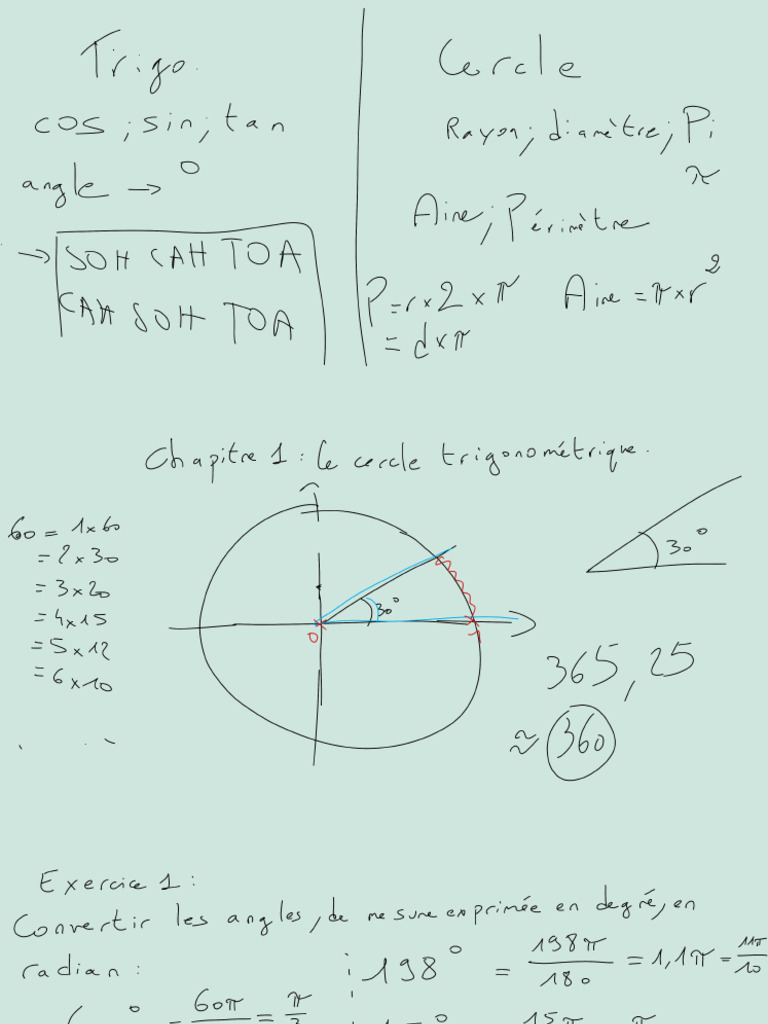 Trigo.
cos ; sin ; tan
angle → °
→ SOH CAH TOA
CAH SOH TOA
Cercle
Rayon ; diamètre ; Pi
π
Aire ; Périmètre
P = r × 2 × π
= d × π
Aire = π × r²
Chapitre 1 : Le cercle trigonométrique.
60 = 1 × 60
= 2 × 30
= 3 × 20
= 4 × 15
= 5 × 12
= 6 × 10
30°
O
30°
365,25
≈ 360
Exercice 1 :
Convertir les angles, de mesure exprimée en degré, en
radian :
198° = 198π/180 = 1,1π = 11π/10
= 60π = π
15π π